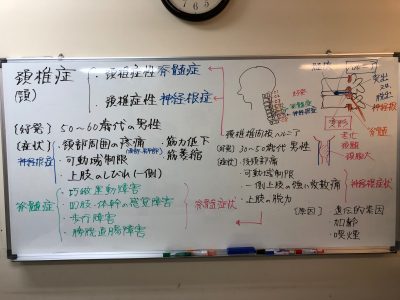 頚椎症
(頸)
・頚椎症性 脊髄症
・頚椎症性 神経根症
〔好発〕50〜60歳代の男性
〔症状〕・頚部周囲の疼痛 ・筋力低下
神経根症
・可動域制限 ・筋萎縮
・上肢のしびれ(一側)
脊髄症
・巧緻運動障害
・四肢・体幹の感覚障害
・歩行障害
・膀胱直腸障害
脊髄症状
好発
脊髄症
神経根症
突出
神経根
脊髄
変形
老化
頚椎椎間板ヘルニア
〔好発〕30〜50歳代の男性
〔症状〕・後頚部痛
・可動域制限
・一側上肢の強い放散痛
・上肢の脱力
神経根症状
〔原因〕遺伝的素因
加齢
喫煙